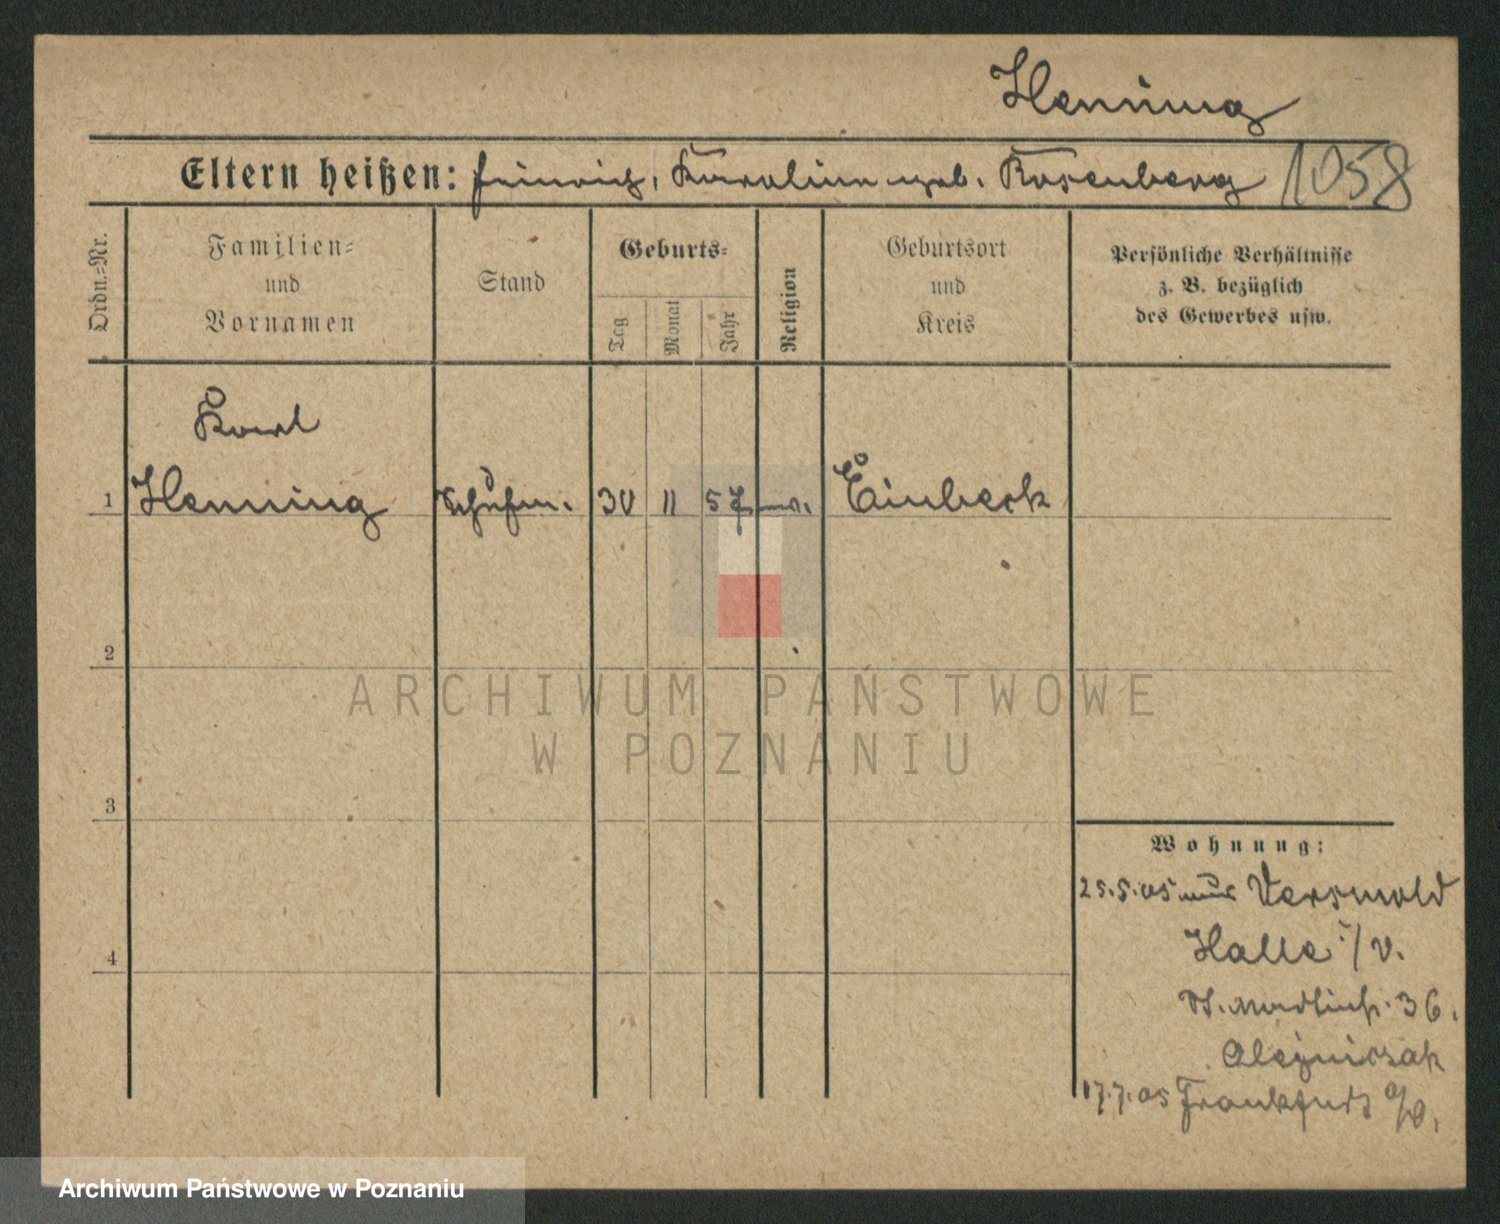 Henning
Eltern heißen: Heinrich, Karoline geb. Rosenberg 1058
Ordn.-Nr.
Familien-
und
Vornamen
Stand
Geburts-
Tag
Monat
Jahr
Religion
Geburtsort
und
Kreis
Persönliche Verhältnisse
z. B. bezüglich
des Gewerbes usw.
Karl
1 Henning 30 11 57 Einbeck
2
3
4
ARCHIWUM PAŃSTWOWE
W POZNANIU
Wohnung:
25.5.05 aus Versmold
Halle i/W.
36.
17.7.05 Frankfurt a/O.
Archiwum Państwowe w Poznaniu